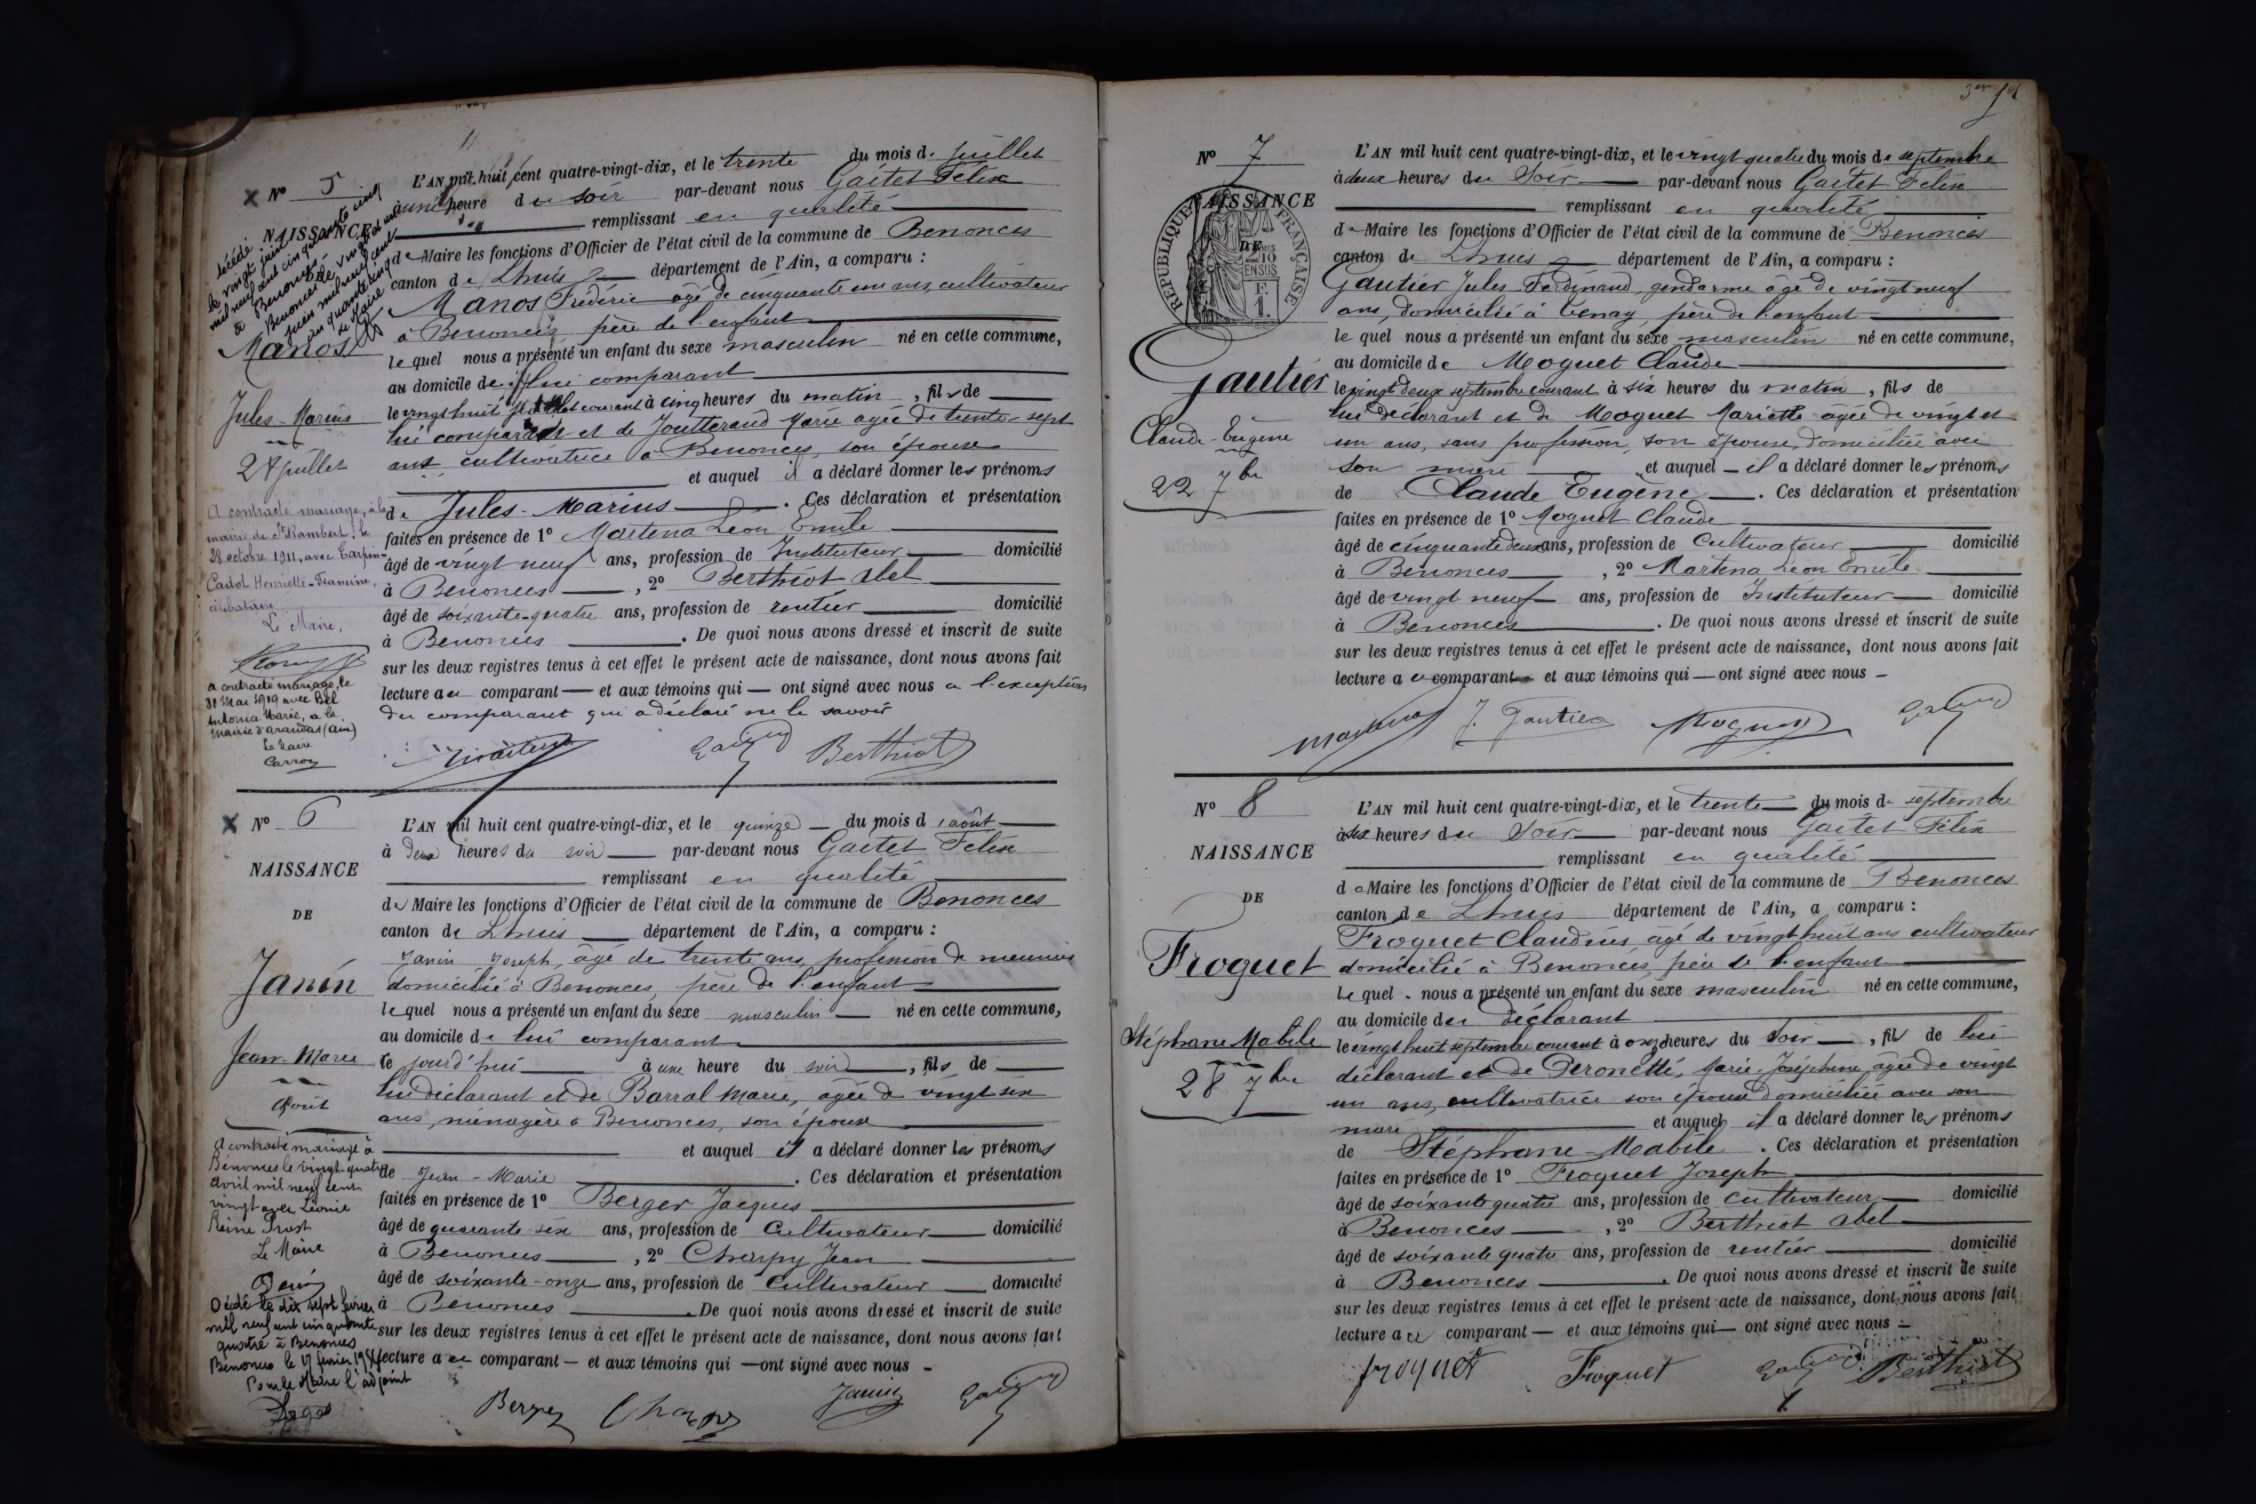 Nº 5
NAISSANCE
Manos
Jules-Marius
28 juillet
décédé
le vingt juin
mil neuf cent cinquante cinq
à Benonces
A contracté mariage, à la
mairie de St Rambert, le
28 octobre 1911, avec Carpin-
Cadot Henriette-Framine,
célibataire
Le Maire,
a contracté mariage, le
31 Mai 1919 avec Bel
Antonia Marie, à la
mairie d'arandas (ain)
Le Maire
Carron
L'AN mil huit cent quatre-vingt-dix, et le trente du mois de juillet
à une heure du soir par-devant nous Gaitet Félix
remplissant en qualité
de Maire les fonctions d'Officier de l'état civil de la commune de Benonces
canton de Lhuis département de l'Ain, a comparu :
Manos Frédéric âgé de cinquante un ans, cultivateur
à Benonces père de l'enfant
lequel nous a présenté un enfant du sexe masculin né en cette commune,
au domicile de lui comparant
le vingt huit juillet courant à cinq heures du matin, fils de
lui comparant et de Joutterand Marie agée de trente-sept
ans, cultivatrice à Benonces, son épouse
et auquel il a déclaré donner les prénoms
de Jules-Marius. Ces déclaration et présentation
faites en présence de 1º Martena Léon Emile
âgé de vingt neuf ans, profession de Instituteur domicilié
à Benonces, 2º Berthiot Abel
âgé de soixante-quatre ans, profession de rentier domicilié
à Benonces. De quoi nous avons dressé et inscrit de suite
sur les deux registres tenus à cet effet le présent acte de naissance, dont nous avons fait
lecture au comparant et aux témoins qui ont signé avec nous à l'exception
du comparant qui a déclaré ne le savoir
Berthiot
Nº 6
NAISSANCE
DE
Janin
Jean-Marie
Août
A contracté mariage à
Bénonces le vingt-quatre
avril mil neuf cent
vingt avec Léonie
Reine Prost
Le Maire
Décédé le dix sept février
mil neuf cent cinquante
quatre à Benonces
Benonces le 17 février 1954
Pour le Maire l'adjoint
L'AN mil huit cent quatre-vingt-dix, et le quinze du mois d'août
à deux heures du soir par-devant nous Gaitet Félix
remplissant en qualité
de Maire les fonctions d'Officier de l'état civil de la commune de Benonces
canton de Lhuis département de l'Ain, a comparu :
Janin Joseph, âgé de trente ans, profession de meunier
domicilié à Benonces, père de l'enfant
lequel nous a présenté un enfant du sexe masculin né en cette commune,
au domicile de lui comparant
le jourd'hui à une heure du soir, fils de
lui déclarant et de Barral Marie, agée de vingt six
ans, ménagère à Benonces, son épouse
et auquel il a déclaré donner les prénoms
de Jean-Marie. Ces déclaration et présentation
faites en présence de 1º Berger Jacques
âgé de quarante-six ans, profession de Cultivateur domicilié
à Benonces, 2º Charpy Jean
âgé de soixante-onze ans, profession de Cultivateur domicilié
à Benonces. De quoi nous avons dressé et inscrit de suite
sur les deux registres tenus à cet effet le présent acte de naissance, dont nous avons fait
lecture au comparant et aux témoins qui ont signé avec nous
Berger Charpy Janin
Nº 7
NAISSANCE
DE
RÉPUBLIQUE FRANÇAISE
2/10 EN SUS
Gautier
Claude-Eugène
22 7bre
L'AN mil huit cent quatre-vingt-dix, et le vingt quatre du mois de septembre
à deux heures du Soir par-devant nous Gaitet Félix
remplissant en qualité
de Maire les fonctions d'Officier de l'état civil de la commune de Benonces
canton de Lhuis département de l'Ain, a comparu :
Gautier Jules Ferdinand, gendarme âgé de vingt neuf
ans, domicilié à Tenay, père de l'enfant
lequel nous a présenté un enfant du sexe masculin né en cette commune,
au domicile de Moguet Claude
le vingt deux septembre courant à six heures du matin, fils de
lui déclarant et de Moguet Mariette agée de vingt et
un ans, sans profession, son épouse, domiciliée avec
son mari et auquel il a déclaré donner les prénoms
de Claude Eugène. Ces déclaration et présentation
faites en présence de 1º Moguet Claude
âgé de cinquante deux ans, profession de Cultivateur domicilié
à Benonces, 2º Martena Léon Emile
âgé de vingt neuf ans, profession de Instituteur domicilié
à Benonces. De quoi nous avons dressé et inscrit de suite
sur les deux registres tenus à cet effet le présent acte de naissance, dont nous avons fait
lecture au comparant et aux témoins qui ont signé avec nous
J. Gautier Moguet
Nº 8
NAISSANCE
DE
Froguet
Stéphane Mabile
28 7bre
L'AN mil huit cent quatre-vingt-dix, et le trente du mois de septembre
à six heures du Soir par-devant nous Gaitet Félix
remplissant en qualité
de Maire les fonctions d'Officier de l'état civil de la commune de Benonces
canton de Lhuis département de l'Ain, a comparu :
Froguet Claudius, âgé de vingt huit ans cultivateur
domicilié à Benonces, père de l'enfant
lequel nous a présenté un enfant du sexe masculin né en cette commune,
au domicile du déclarant
le vingt huit septembre courant à onze heures du Soir, fils de lui
déclarant et de Peronette, Marie-Joséphine, agée de vingt
un ans, cultivatrice son épouse domiciliée avec son
mari et auquel il a déclaré donner les prénoms
de Stéphane-Mabile. Ces déclaration et présentation
faites en présence de 1º Froguet Joseph
âgé de soixante quatre ans, profession de Cultivateur domicilié
à Benonces, 2º Berthiot Abel
âgé de soixante quatre ans, profession de rentier domicilié
à Benonces. De quoi nous avons dressé et inscrit de suite
sur les deux registres tenus à cet effet le présent acte de naissance, dont nous avons fait
lecture au comparant et aux témoins qui ont signé avec nous
froguet Froguet Berthiot